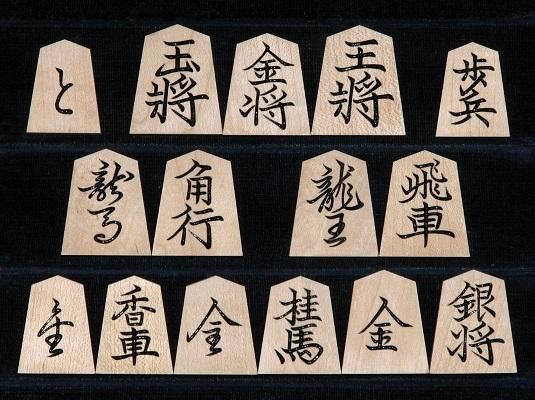 と 玉将 金将 王将 歩兵
龍馬 角行 龍王 飛車
全 香車 金 桂馬 金 銀将